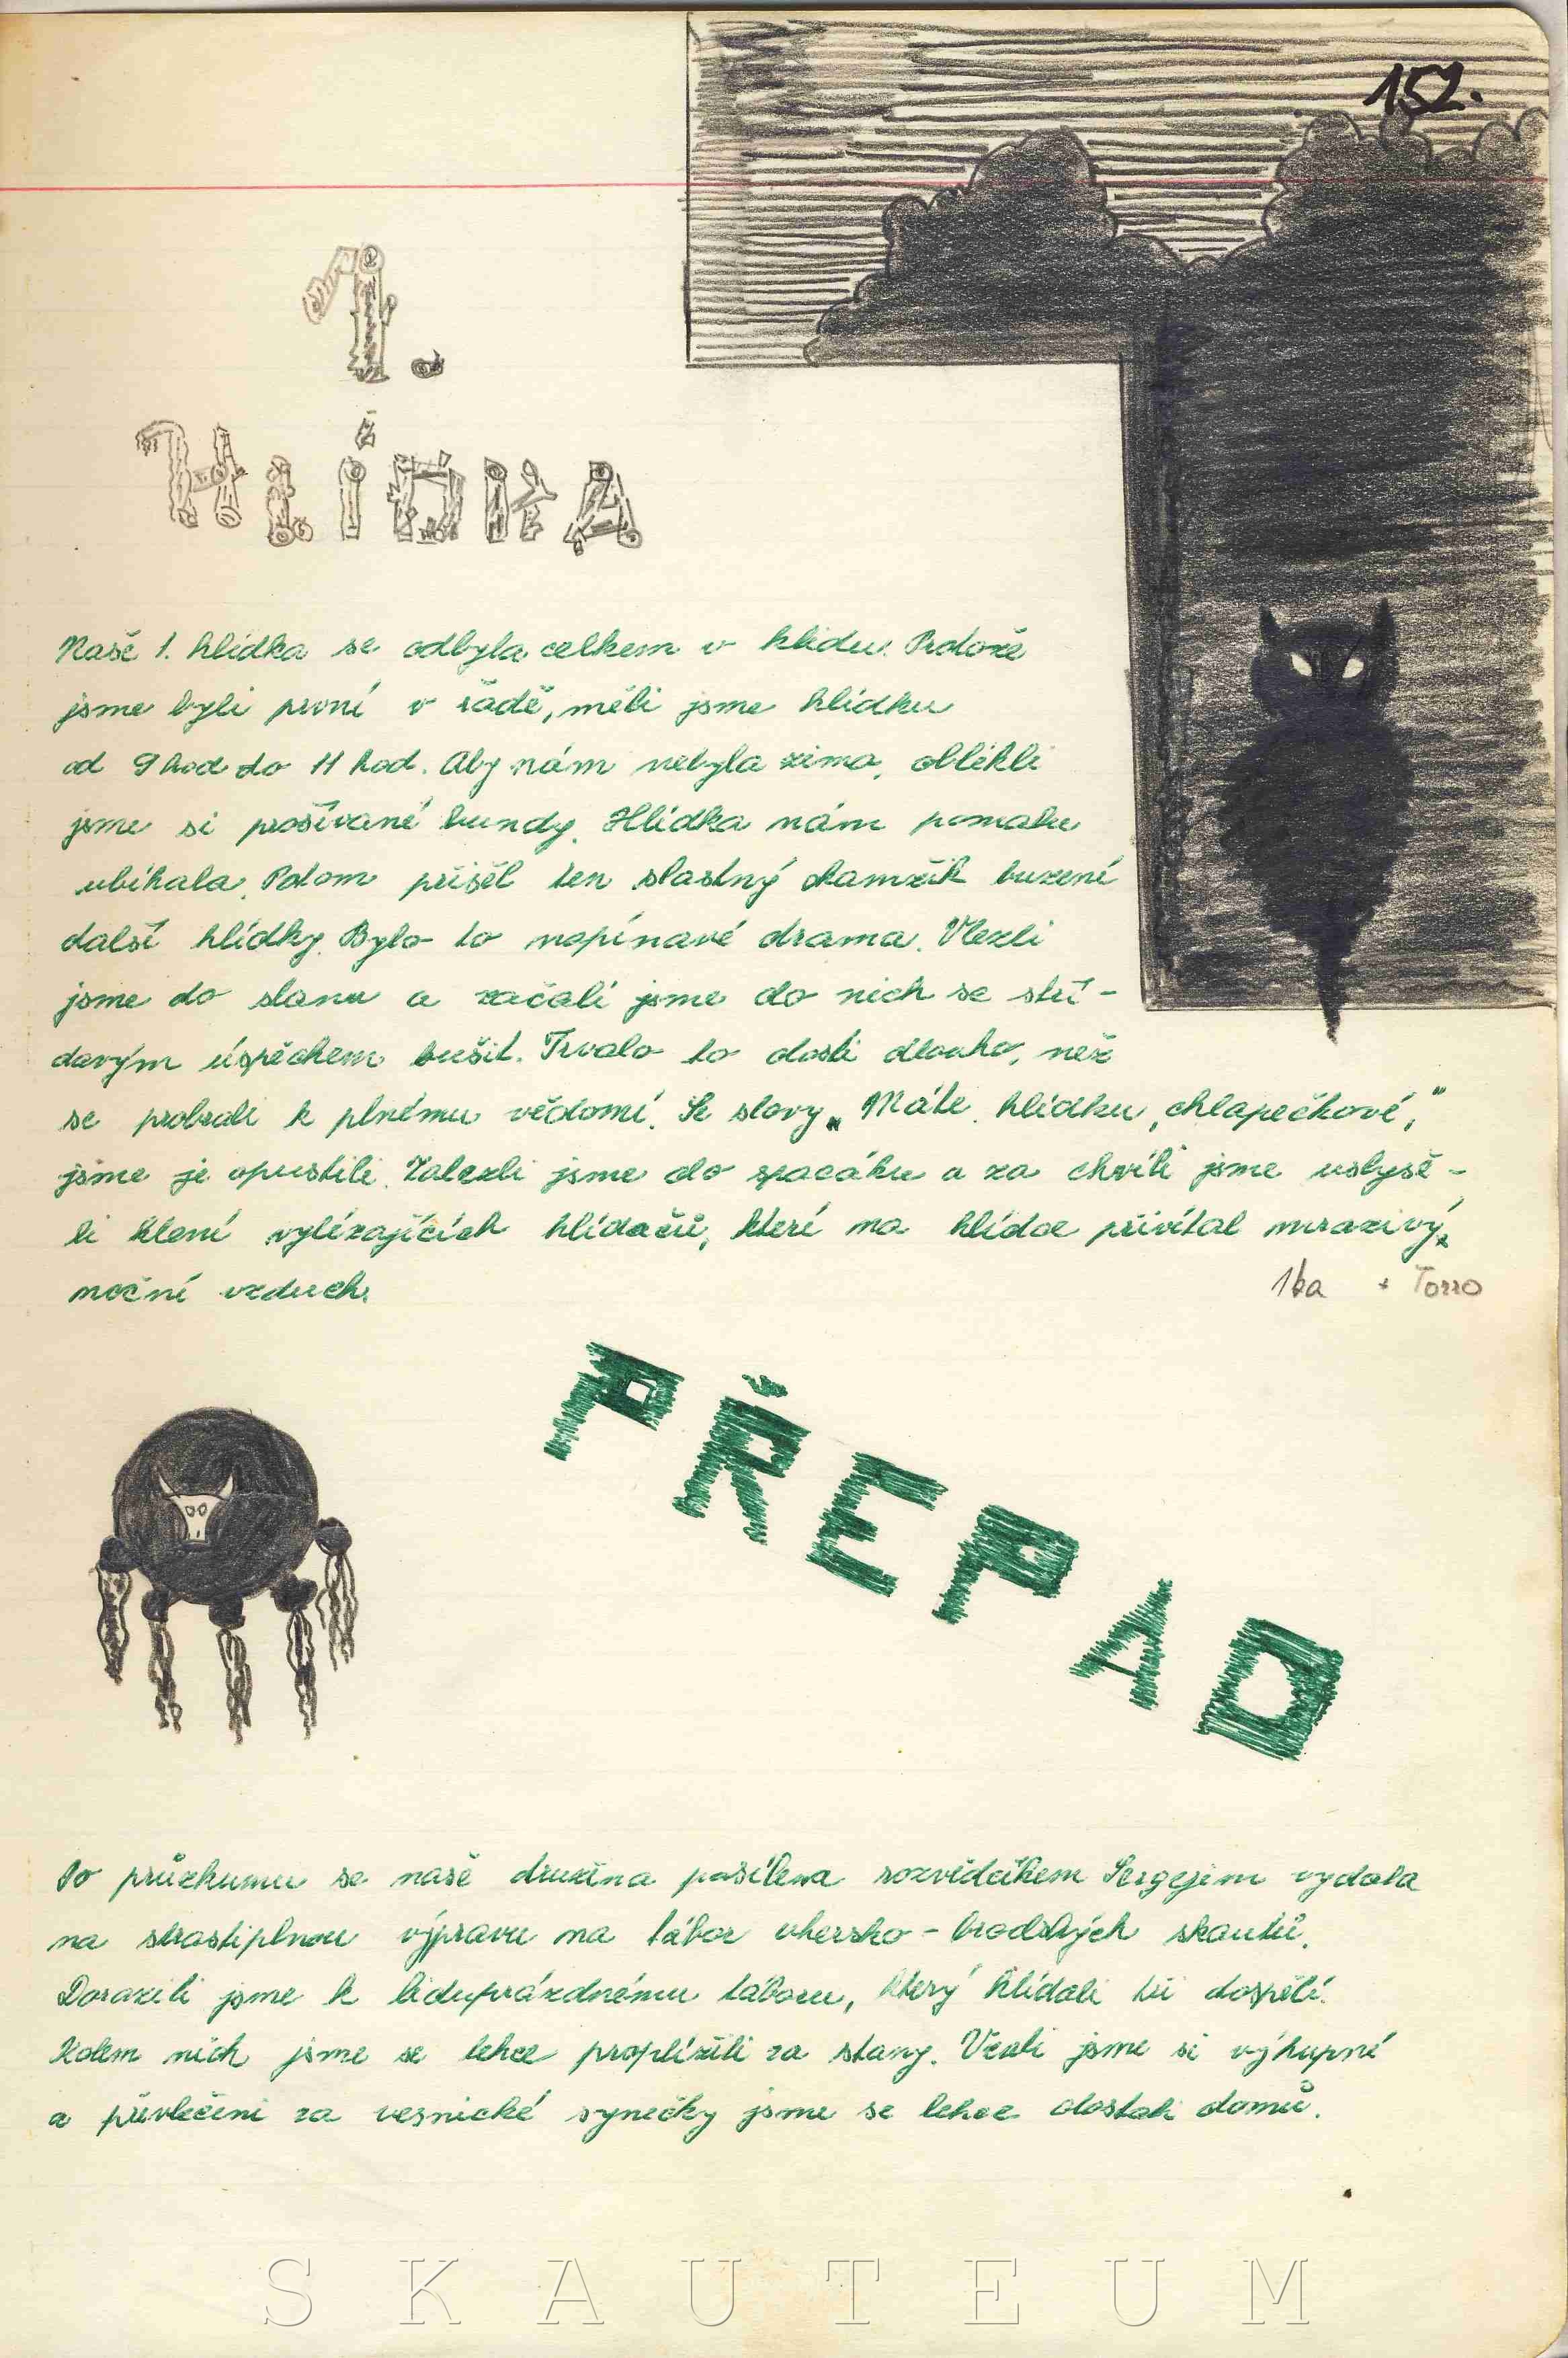 152.
1.
HLÍDKA
Naše 1. hlídka se odbyla celkem v klidu. Protože
jsme byli první v řadě, měli jsme hlídku
od 9 hod do 11 hod. Aby nám nebyla zima, oblékli
jsme si prošívané bundy. Hlídka nám pomalu
ubíhala. Potom přišel ten slastný okamžik buzení
další hlídky. Bylo to napínavé drama. Vlezli
jsme do stanu a začali jsme do nich se stří-
davým úspěchem bušit. Trvalo to dosti dlouho, než
se probrali k plnému vědomí. Se slovy „Máte hlídku, chlapečkové,"
jsme je opustili. Zalezli jsme do spacáku a za chvíli jsme uslyše-
li klení vylézajících hlídačů, které na hlídce přivítal mrazivý
noční vzduch.
Iba + Torro
PŘEPAD
Po průzkumu se naše družina posílena rozvědčíkem Sergejem vydala
na strastiplnou výpravu na tábor uhersko-brodských skautů.
Dorazili jsme k liduprázdnému táboru, který hlídali tři dospělí.
Kolem nich jsme se lehce proplížili za stany. Vzali jsme si výkupné
a převlečeni za vesnické synečky jsme se lehce dostali domů.
SKAUTEUM